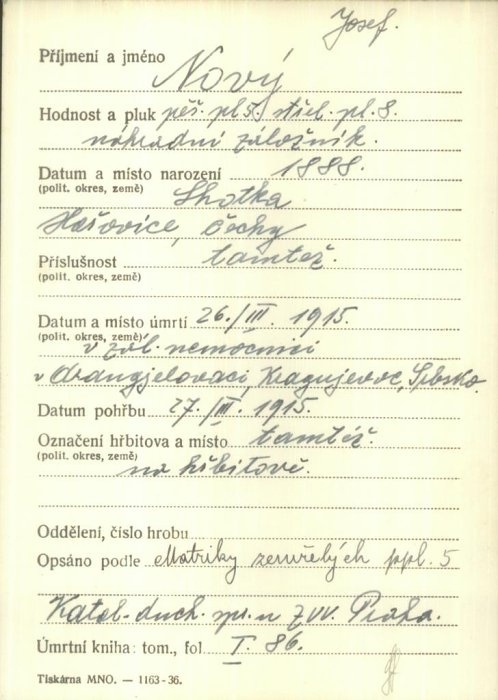 Josef.
Příjmení a jméno Nový
Hodnost a pluk pěš. pl. 5. střel. pl. 8.
náhradní záložník.
Datum a místo narození 1888.
(polit. okres, země) Lhotka
Hořovice, Čechy
Příslušnost tamtéž.
(polit. okres, země)
Datum a místo úmrtí 26./III. 1915.
(polit. okres, země) v zál. nemocnici
v Arangjelovaci, Kragujevac, Srbsko.
Datum pohřbu 27./III. 1915.
Označení hřbitova a místo tamtéž.
(polit. okres, země) na hřbitově.
Oddělení, číslo hrobu
Opsáno podle Matriky zemřelých ppl. 5
Katol. duch. spr. u ZVV. Praha.
Úmrtní kniha: tom., fol. I. 86.
Tiskárna MNO. — 1163-36.